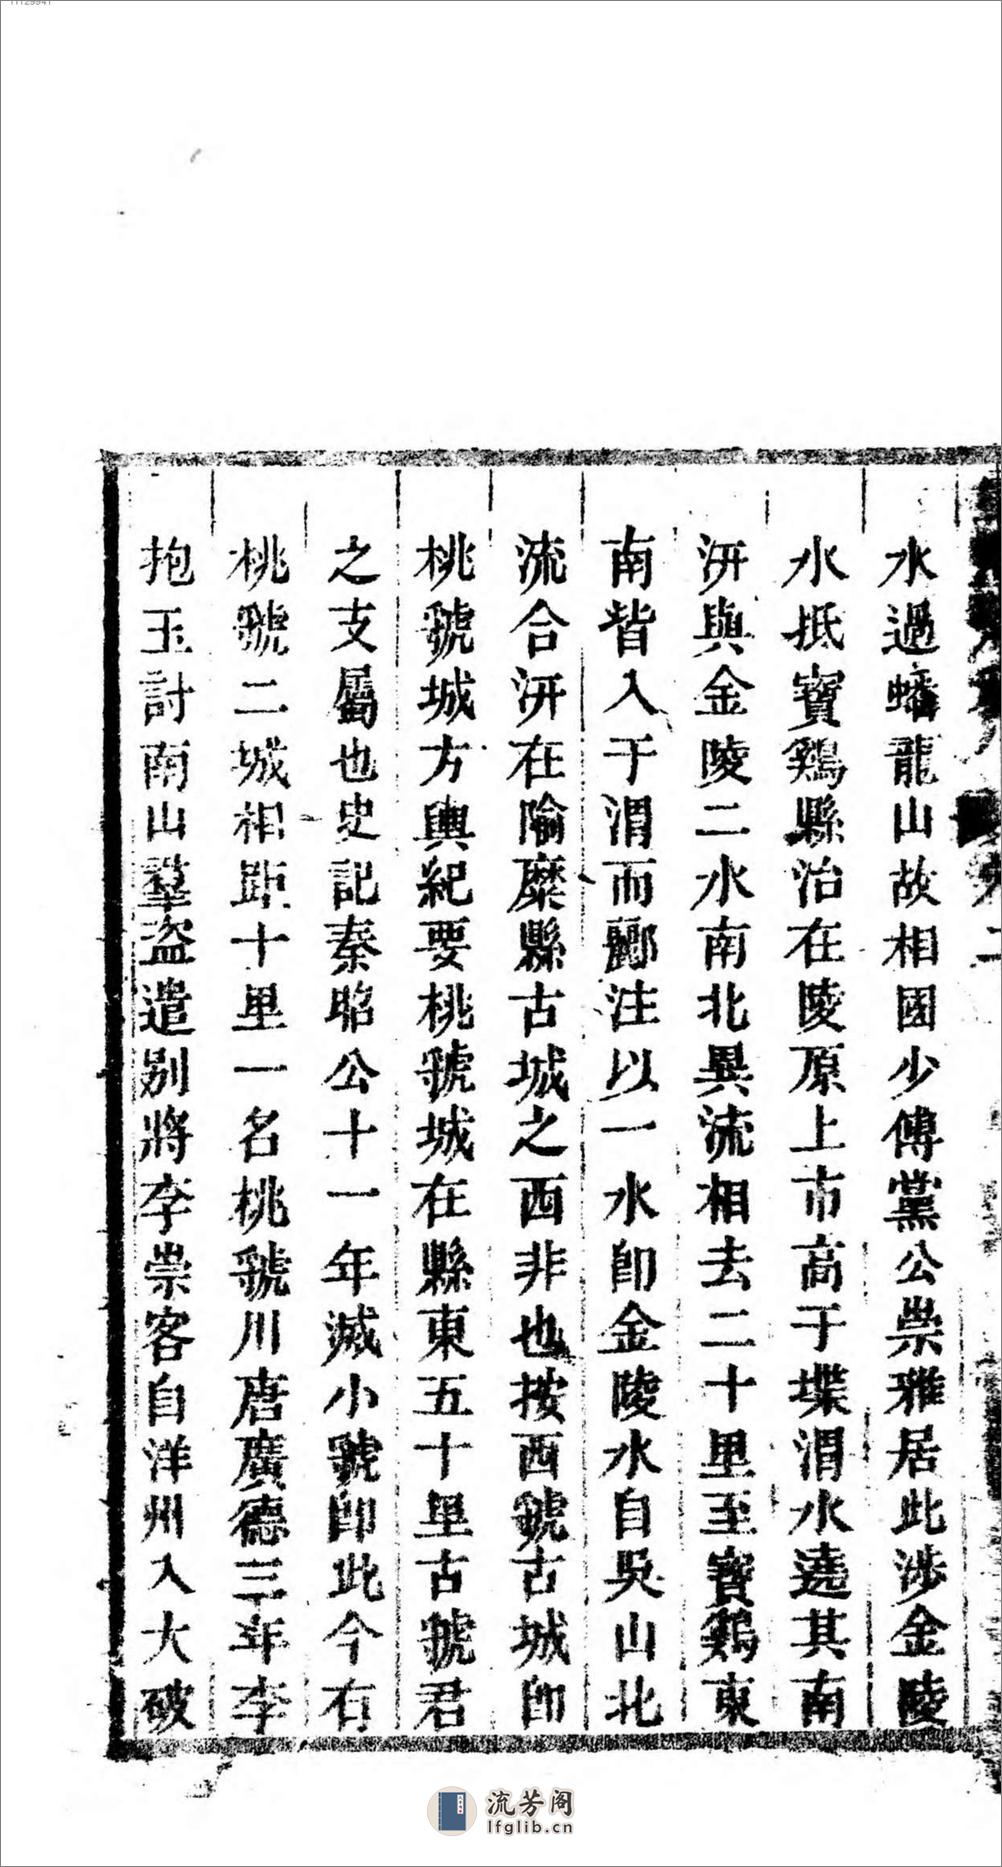 水過蟠龍山故相國少傅黨公崇雅居此渉金陵
水抵寶鷄縣治在陵原上市高于堞渭水遶其南
汧與金陵二水南北異流相去二十里至寶鷄東
南皆入于渭而酈注以一水卽金陵水自吳山北
流合汧在隃糜縣古城之西非也按西虢古城卽
桃虢城方輿紀要桃虢城在縣東五十里古虢君
之支屬也史記秦昭公十一年滅小虢卽此今有
桃虢二城相距十里一名桃虢川唐廣德三年李
抱玉討南山羣盜遣别將李崇客自洋州入大破
流芳阁
lfglib.cn